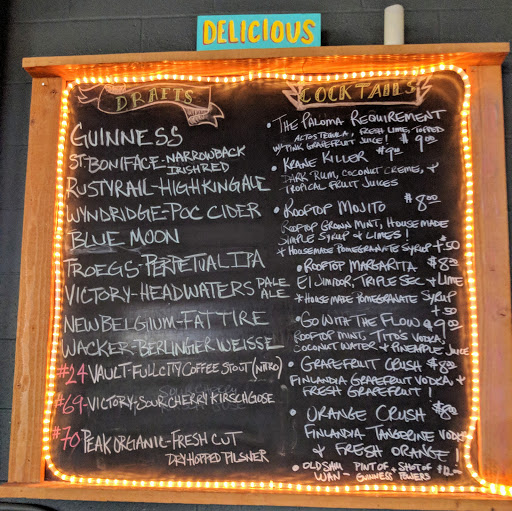 DELICIOUS
DRAFTS
GUINNESS
ST. BONIFACE-NARROWBACK
IRISH RED
RUSTYRAIL-HIGH KING ALE
WYNDRIDGE-POC CIDER
BLUE MOON
TROEGS-PERPETUAL IPA
VICTORY-HEADWATERS PALE ALE
NEW BELGIUM-FAT TIRE
WACKER-BERLINGER WEISSE
#24 VAULT-FULL CITY COFFEE STOUT (NITRO)
#69-VICTORY-SOUR CHERRY KIRSCH GOSE
#70 PEAK ORGANIC-FRESH CUT
DRY HOPPED PILSNER
COCKTAILS
• THE PALOMA REQUIREMENT
ALTOS TEQUILA, FRESH LIME, TOPPED
W/ PINK GRAPEFRUIT JUICE! $9.00
• KRANE KILLER $9.00
DARK RUM, COCONUT CREME, &
TROPICAL FRUIT JUICES
• ROOFTOP MOJITO $8.00
ROOFTOP GROWN MINT, HOUSEMADE
SIMPLE SYRUP & LIMES!
* HOUSEMADE POMEGRANATE SYRUP +.50
• ROOFTOP MARGARITA $8.00
EL JIMIDOR, TRIPLE SEC & LIME
* HOUSEMADE POMEGRANATE SYRUP
+.50
• GO WITH THE FLOW $9.00
ROOFTOP MINT, TITO'S VODKA,
COCONUT WATER & PINEAPPLE JUICE
• GRAPEFRUIT CRUSH $8.00
FINLANDIA GRAPEFRUIT VODKA, &
FRESH GRAPEFRUIT!
• ORANGE CRUSH $8.00
FINLANDIA TANGERINE VODKA
& FRESH ORANGE!
• OLD SHM PINT OF + SHOT OF
WAN- GUINNESS POWERS